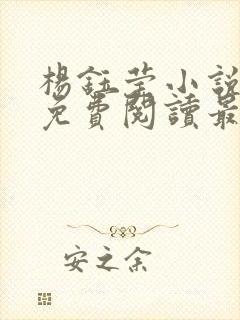 楊鈺瑩小說
免費閱讀最
安之余